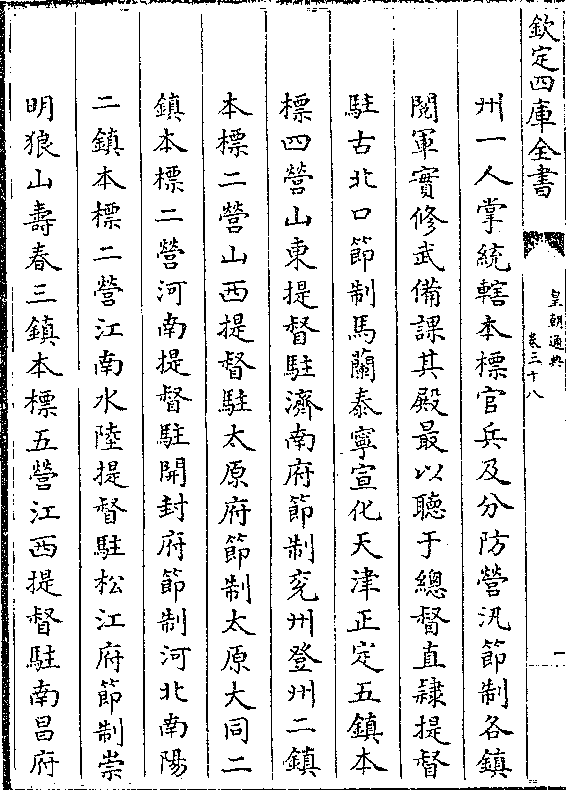 欽定四庫全書
皇朝通典
卷三十八
一
州一人掌統轄本標官兵及分防營汛節制各鎮
閱軍實修武備課其殿最以聽于總督直隸提督
駐古北口節制馬蘭泰寧宣化天津正定五鎮本
標四營山東提督駐濟南府節制兖州登州二鎮
本標二營山西提督駐太原府節制太原大同二
鎮本標二營河南提督駐開封府節制河北南陽
二鎮本標二營江南水陸提督駐松江府節制崇
明狼山壽春三鎮本標五營江西提督駐南昌府